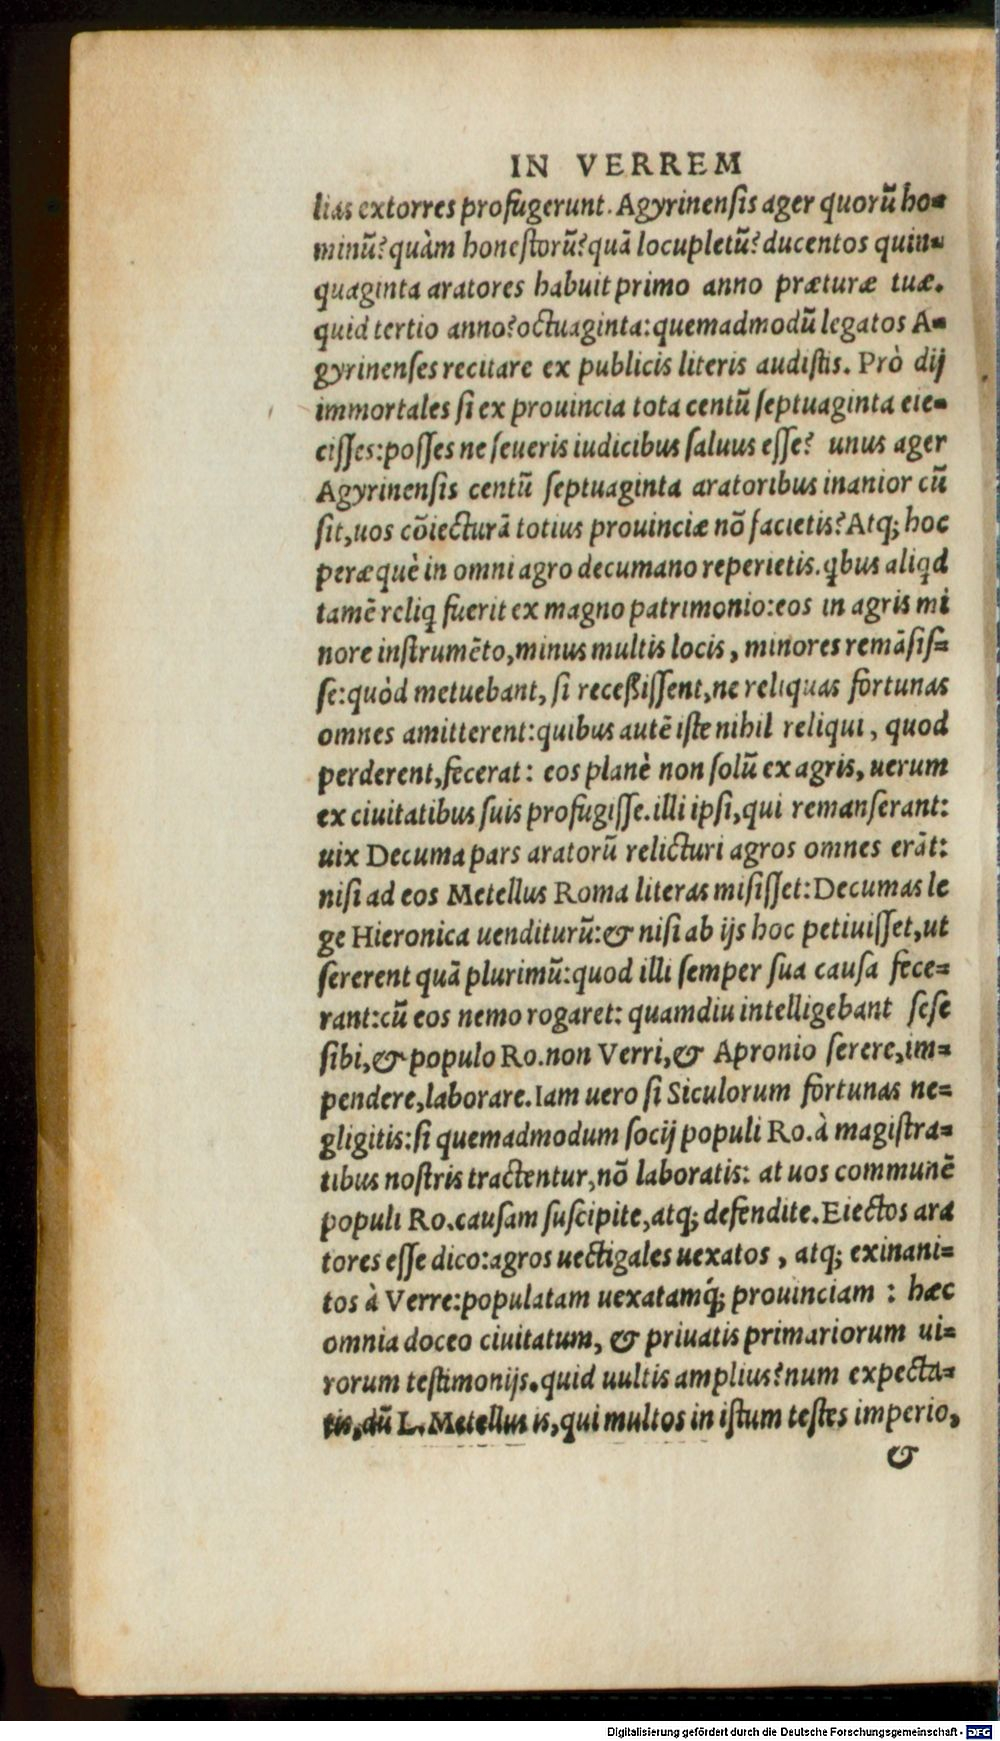 IN VERREM
lias extorres profugerunt. Agyrinenſis ager quorũ ho=
minũ? quàm honeſtorũ? quã locupletũ? ducentos quin=
quaginta aratores habuit primo anno præturæ tuæ.
quid tertio anno? octuaginta: quemadmodũ legatos A=
gyrinenſes recitare ex publicis literis audiſtis. Prò dij
immortales ſi ex prouincia tota centũ ſeptuaginta eie=
ciſſes: poſſes ne ſeueris iudicibus ſaluus eſſe? unus ager
Agyrinenſis centũ ſeptuaginta aratoribus inanior cũ
ſit, uos cõiecturã totius prouinciæ nõ facietis? Atq; hoc
peræquè in omni agro decumano reperietis. qbus aliqd
tamẽ reliq fuerit ex magno patrimonio: eos in agris mi
nore inſtrumẽto, minus multis locis, minores remãſiſ=
ſe: quòd metuebant, ſi receßiſſent, ne reliquas fortunas
omnes amitterent: quibus autẽ iſte nihil reliqui, quod
perderent, fecerat: eos planè non ſolũ ex agris, uerum
ex ciuitatibus ſuis profugiſſe. illi ipſi, qui remanſerant:
uix Decuma pars aratorũ relicturi agros omnes erãt:
niſi ad eos Metellus Roma literas miſiſſet: Decumas le
ge Hieronica uenditurũ: & niſi ab ijs hoc petiuiſſet, ut
ſererent quã plurimũ: quod illi ſemper ſua cauſa fece=
rant: cũ eos nemo rogaret: quamdiu intelligebant ſeſe
ſibi, & populo Ro. non Verri, & Apronio ſerere, im=
pendere, laborare. Iam uero ſi Siculorum fortunas ne=
gligitis: ſi quemadmodum ſocij populi Ro. à magiſtra=
tibus noſtris tractentur, nõ laboratis: at uos communẽ
populi Ro. cauſam ſuſcipite, atq; defendite. Eiectos ara
tores eſſe dico: agros uectigales uexatos, atq; exinani=
tos à Verre: populatam uexatamq́; prouinciam: hæc
omnia doceo ciuitatum, & priuatis primariorum ui=
rorum teſtimonijs. quid uultis amplius? num expecta=
tis, dũ L. Metellus is, qui multos in iſtum teſtes imperio,
&
Digitalisierung gefördert durch die Deutsche Forschungsgemeinschaft - DFG